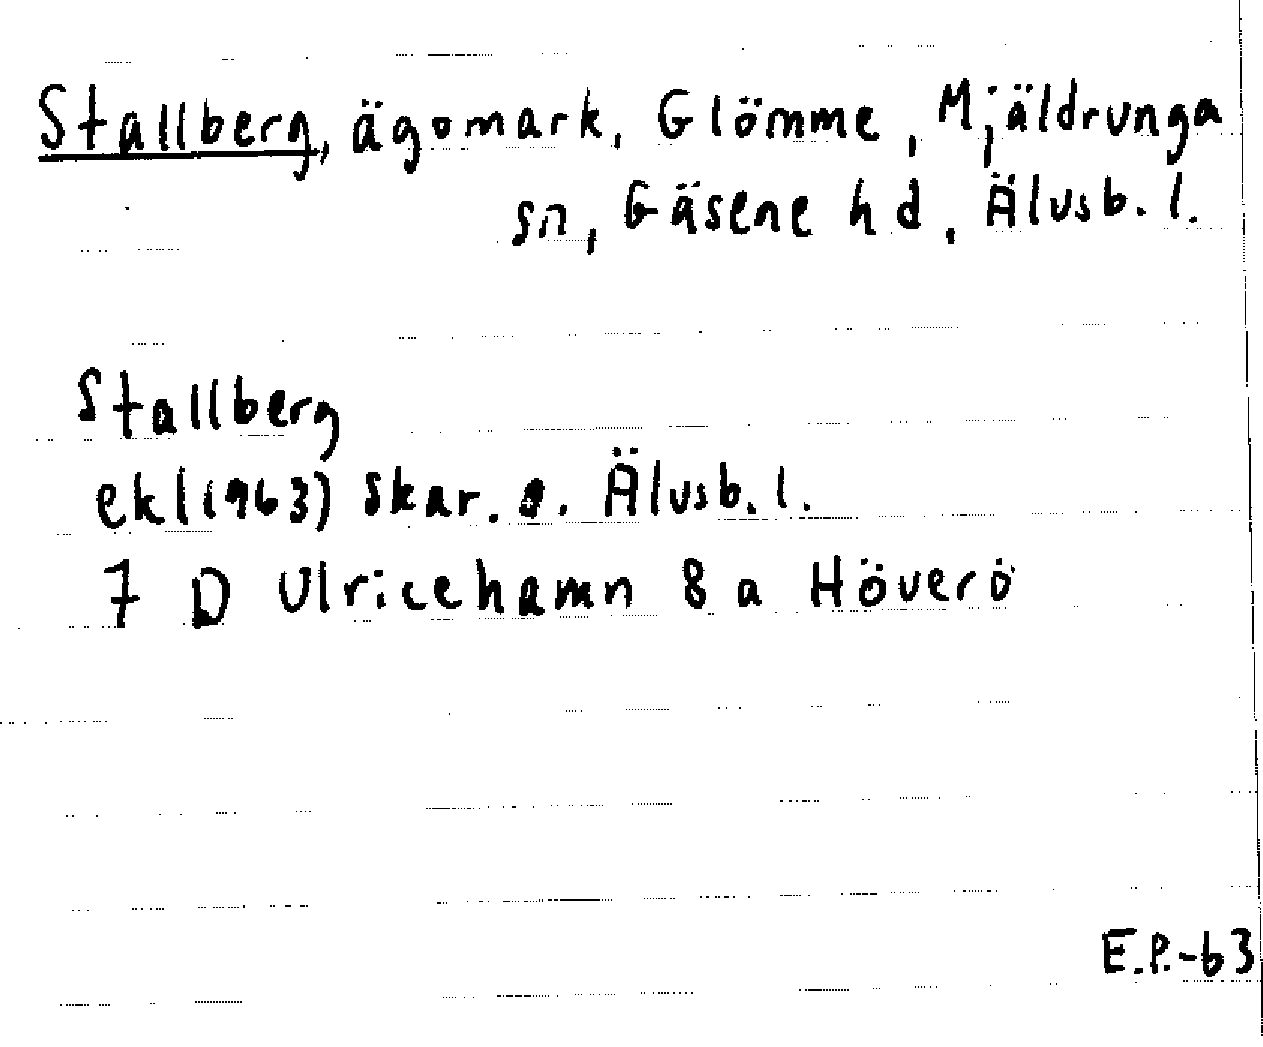 Stallberg, ägomark, Glömme, Mjäldrunga
sn, Gäsene hd, Älvsb. l.
Stallberg
ekl(1963) Skar. o. Älvsb. l.
7 D Ulricehamn 8 a Höverö
E.P.-63